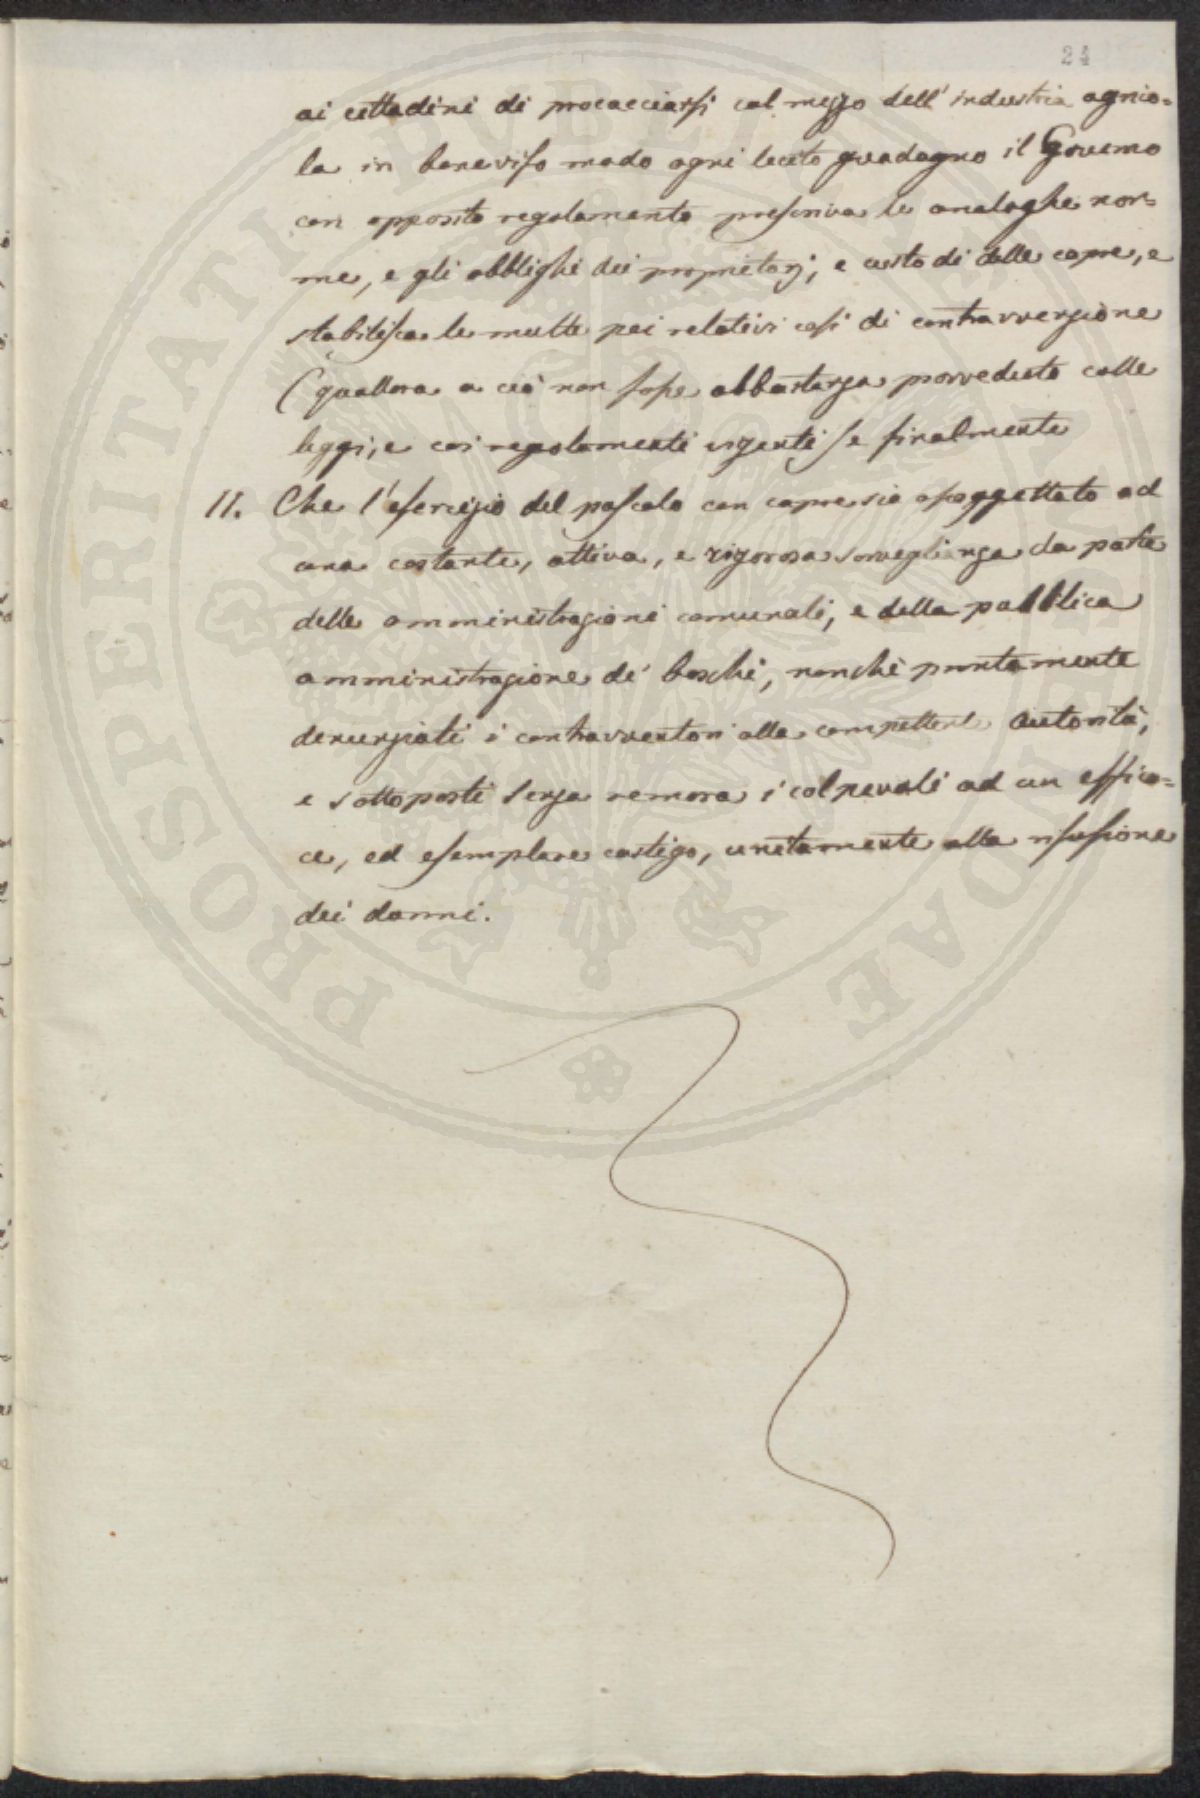 24
ai cittadini di procacciarsi col mezzo dell' industria agrico=
la in beneviso modo ogni lecito guadagno il Governo
con apposito regolamento prescriva le analoghe nor=
me, e gli obblighi dei proprietarj, e custodi delle capre, e
stabilisca le multe pei relativi casi di contravvenzione
(quallora a ciò non fosse abbastanza provveduto colle
leggi, e coi regolamenti vigenti) e finalmente
11. Che l'esercizio del pascolo con capre sia assoggettato ad
una costante, attiva, e rigorosa sorveglianza da parte
delle amministrazioni comunali, e della pubblica
amministrazione de' boschi, nonchè prontamente
denunziati i contravventori alla competente autorità,
e sottoposti senza remora i colpevoli ad un effica=
ce, ed esemplare castigo, unitamente alla rifusione
dei danni.
PROSPERITATI PVBLICAE